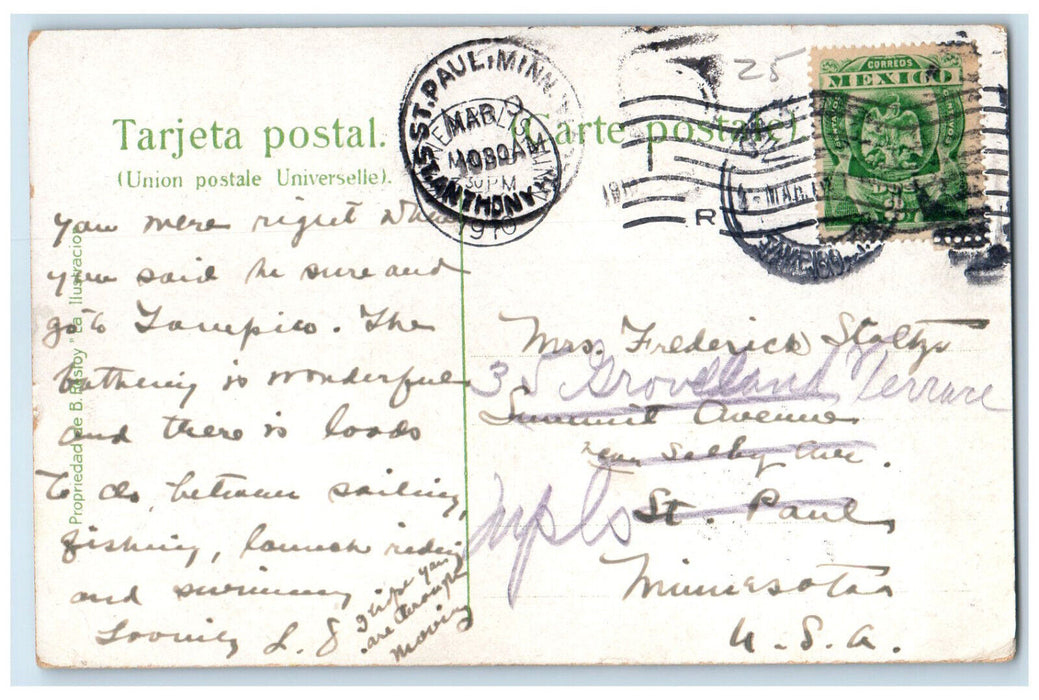 25
CORREOS
MEXICO
ST. PAUL, MINN.
MAR
10 30 AM
ST. ANTHONY
30 PM
1910
R
MAR
TAMPICO
Tarjeta postal.
(Carte postale)
(Union postale Universelle).
Propriedad de B. "La Ilustracion
you were right when
you said be sure and
go to Tampico. The
bathing is wonderful
and there is loads
To do, between sailing,
fishing, launch riding
and swimming
Lovingly L. S
I hope you
are through
moving
Mrs. Frederick Stoltze
35 Groveland Terrace
Summit Avenue
near Selby Ave.
Mpls
St. Paul,
Minnesota
U.S.A.